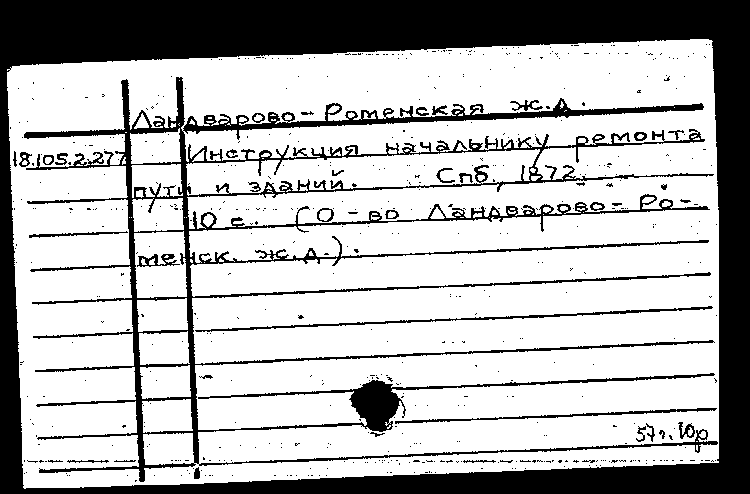 Ландварово-Роменская ж.д.
18.105.2.277 Инструкция начальнику ремонта
пути и зданий. Спб., 1872.
10 с. (О-во Ландварово-Ро-
менск. ж.д.).
57г.